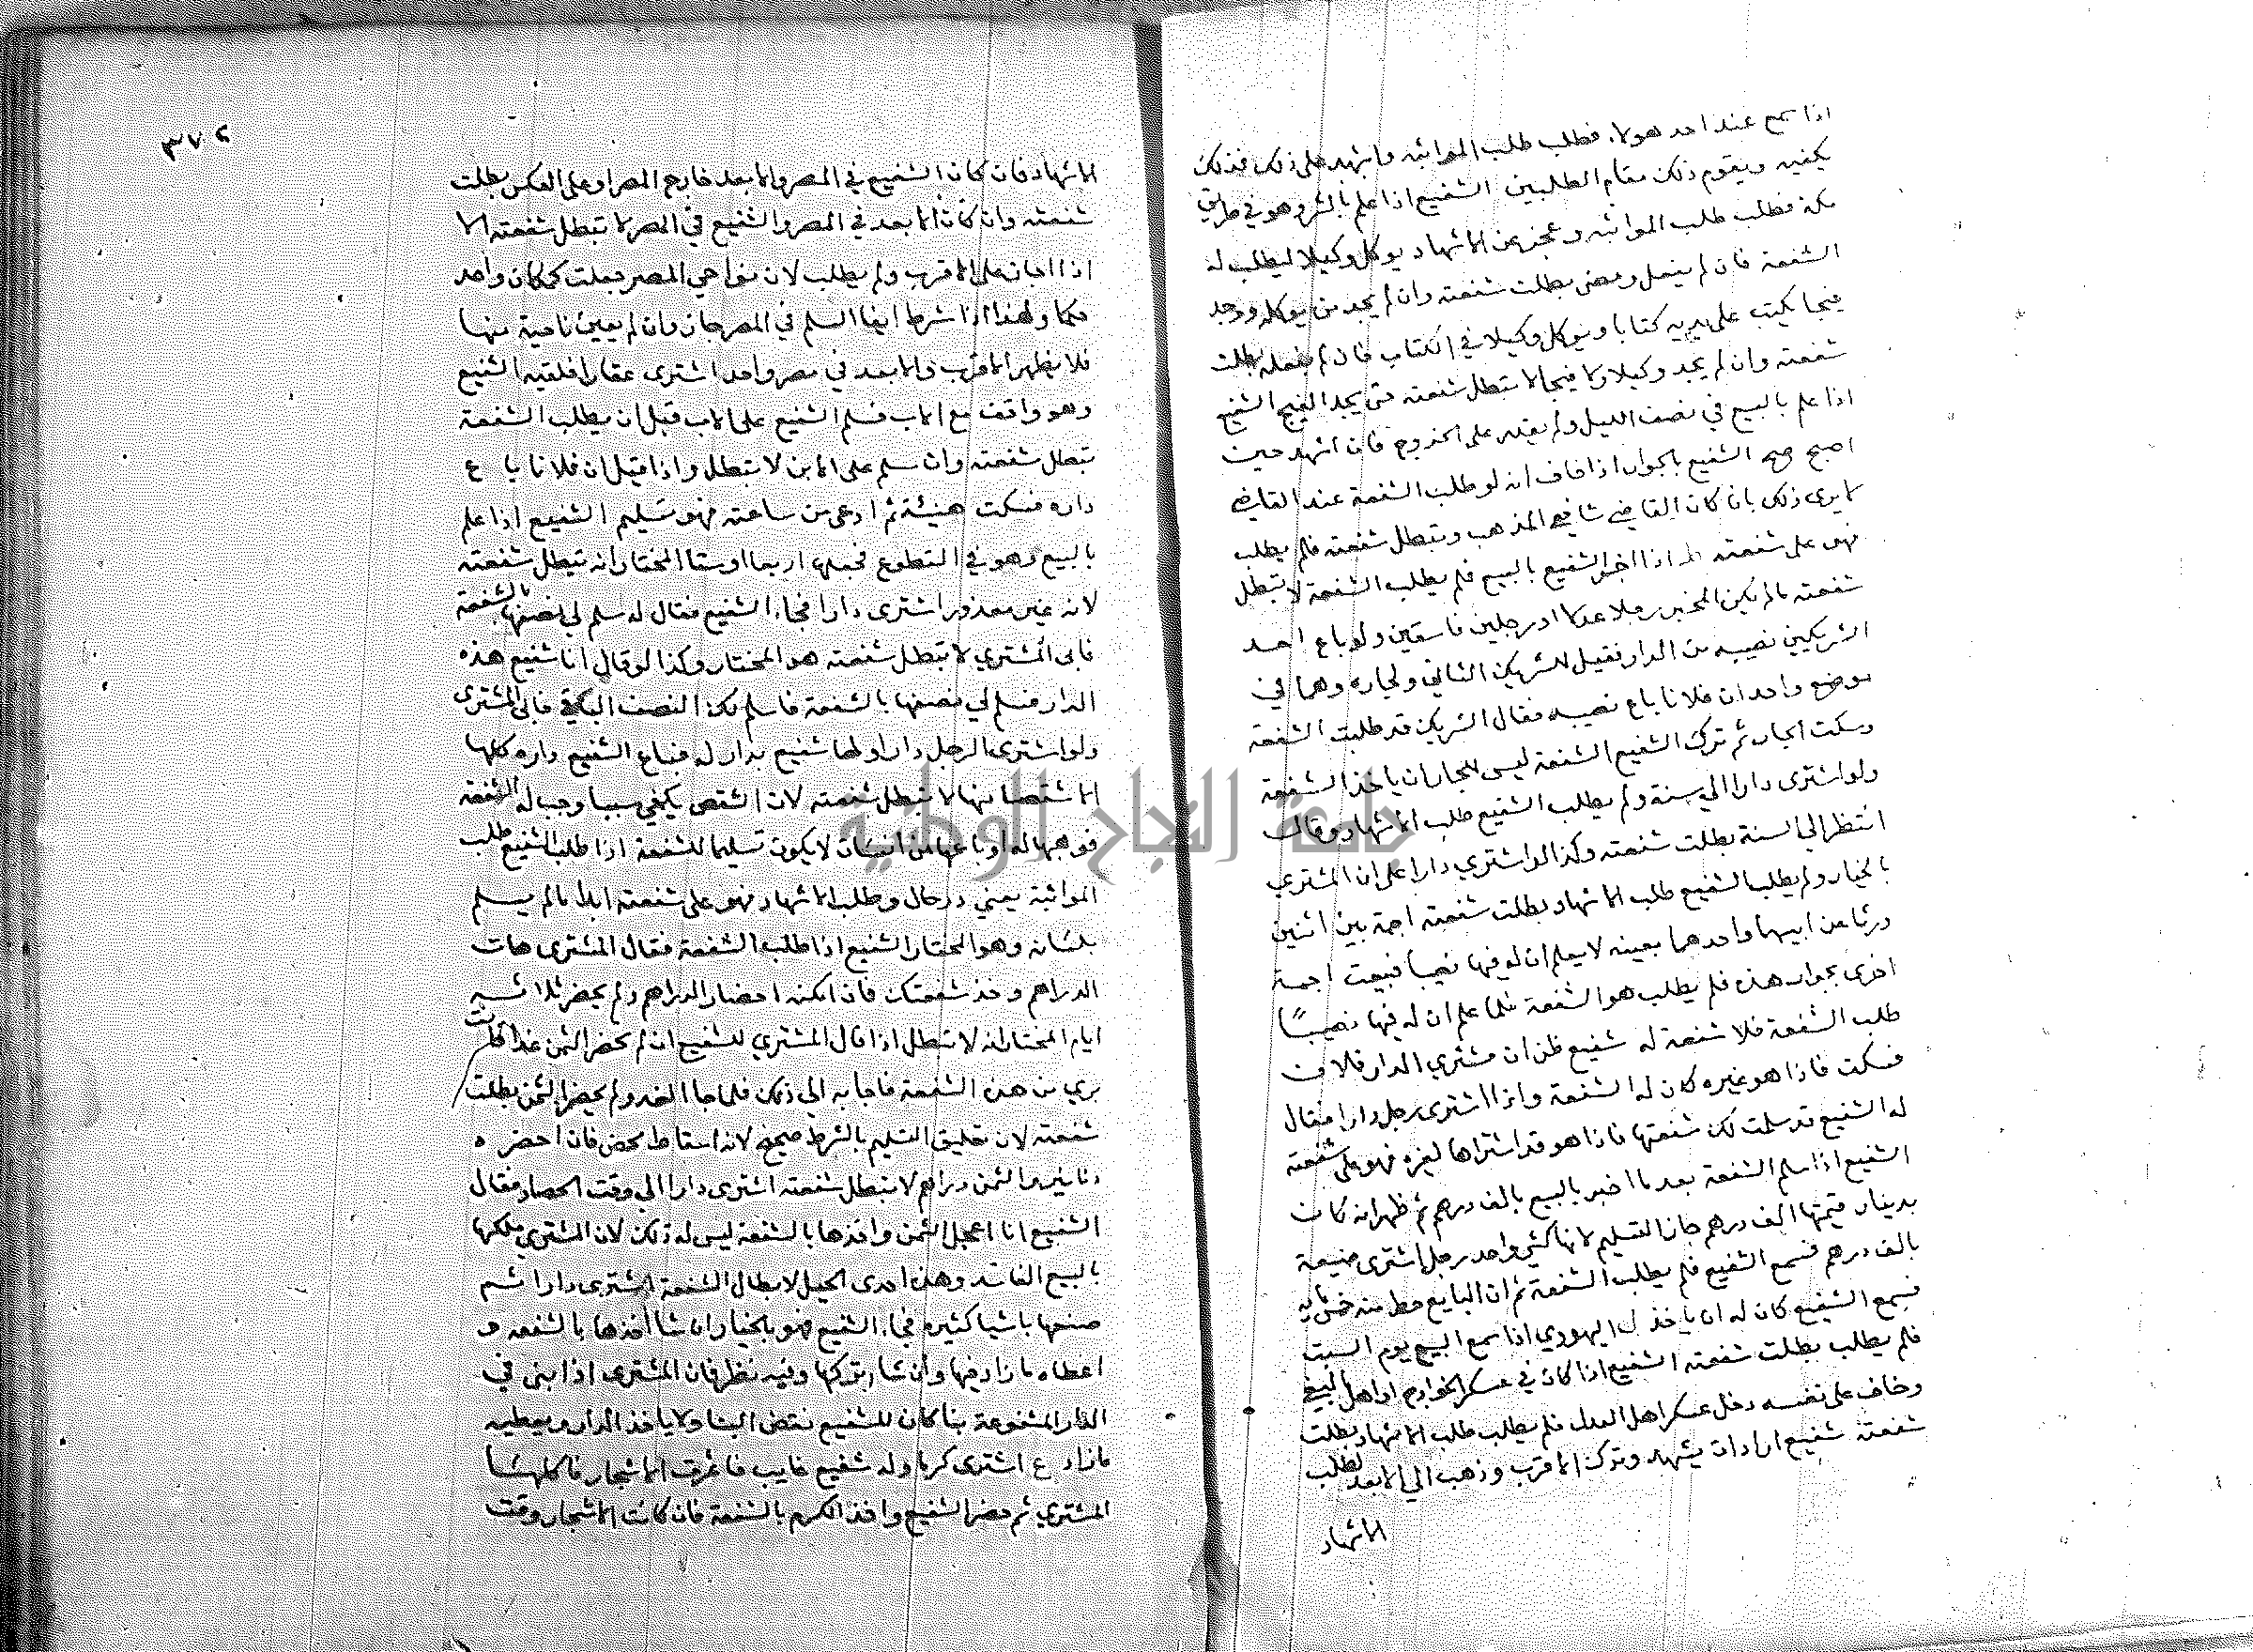 اذا سمع عند احد هولاء فطلب طلب المواثبه واشهد على ذلك فذلك
يكفيه ويقوم ذلك مقام الطلبين الشفيع اذا علم بالشرا وهو في طريق
مكة فطلب طلب المواثبه وعجز عن الاشهاد يوكل وكيلا ليطلب له
الشفعة فان لم يفعل ومضى بطلت شفعته وان لم يجد من يوكله ووجد
فيجا يكتب على يديه كتابا ويوكل وكيلا في الكتاب فان لم يفعله بطلت
شفعته وان لم يجد وكيلا ولا فيجا لا تبطل شفعته حتى يجد الفيج الشفيع
اذا علم بالبيع في نصف الليل ولم يقدر على الخروج فان اشهد حين
اصبح صح الشفيع بالجوار اذا خاف انه لو طلب الشفعة عند القاضي
لا يرى ذلك بان كان القاضي شافعي المذهب وتبطل شفعته فلم يطلب
فهو على شفعته اذا اخبر الشفيع بالبيع فلم يطلب الشفعة لا تبطل
شفعته ما لم يكن المخبر رجلا عدلا او رجلين فاسقين ولو باع احد
الشريكين نصيبه من الدار فقيل للشريك الثاني ولجاره وهما في
موضع واحد ان فلانا باع نصيبه فقال الشريك قد طلبت الشفعة
وسكت الجار ثم ترك الشفيع الشفعة ليس للجار ان ياخذ الشفعة
ولو اشترى دارا الي سنة ولم يطلب الشفيع طلب الاشهاد وقال
انتظر الي السنة بطلت شفعته وكذا لو اشترى دارا على ان المشتري
بالخيار ولم يطلب الشفيع طلب الاشهاد بطلت شفعته اجمة بين اثنين
ورثا عن ابيهما واحدهما بعينه لا يعلم ان له فيها نصيبا فبيعت اجمة
اخرى بجوار هذه فلم يطلب هو الشفعة فلما علم ان له فيها نصيبًا
طلب الشفعة فلا شفعة له شفيع ظن ان مشتري الدار فلان
فسكت فاذا هو غيره كان له الشفعة واذا اشترى رجل دارا فقال
له الشفيع قد سلمت لك شفعتها فاذا هو قد اشتراها لغيره فهو على شفعته
الشفيع اذا سلم الشفعة بعد ما اخبر بالبيع بالف درهم ثم ظهر انه كان
بدينار قيمتها الف درهم جاز التسليم لانها كشي واحد رجل اشترى ضيعة
بالف درهم فسمع الشفيع فلم يطلب الشفعة ثم ان البايع حط منه خمس ماية
فسمع الشفيع كان له ان ياخذ اليهودي اذا سمع البيع يوم السبت
فلم يطلب بطلت شفعته الشفيع اذا كان في عسكر الخوارج او اهل البغي
وخاف على نفسه دخل عسكر اهل العدل فلم يطلب طلب الاشهاد بطلت
شفعته شفيع اراد ان يشهد وترك الاقرب وذهب الي الابعد لطلب
الاشهاد
٣٧٢
الاشهاد فان كان الشفيع في المصر والابعد خارج المصر او على العكس بطلت
شفعته وان كان الابعد في المصر والشفيع في المصر لا تبطل شفعته الا
اذا اجاز على الاقرب ولم يطلب لان نواحي المصر جعلت كمكان واحد
حكما ولهذا اذا شرط ايفا السلم في المصر جاز وان لم يعين ناحية منها
فلا يظهر الاقرب والابعد في مصر واحد اشترى عقارا فلقيه الشفيع
وهو واقف مع الاب فسلم الشفيع على الاب قبل ان يطلب الشفعة
تبطل شفعته وان سلم على الابن لا تبطل واذا قيل ان فلانا باع
داره فسكت هنيئة ثم ادعى من ساعته فهو تسليم الشفيع اذا علم
بالبيع وهو في التطوع فجعلها اربعا او ستا المختار انه تبطل شفعته
لانه غير معذور اشترى دارا فجاء الشفيع فقال له سلم لي نصفها بالشفعة
فابى المشتري لا تبطل شفعته هو المختار وكذا لو قال انا شفيع هذه
الدار فسلم لي نصفها بالشفعة فاسلم لك النصف الباقي فابى المشترى
ولو اشترى الرجل دارا ولها شفيع بدار له فباع الشفيع داره كلها
الا شقصا منها لا تبطل شفعته لان الشقص يكفي سببا وجب له الشفعة
فوهبها له او باعها من انسان لا يكون تسليما للشفعة اذا طلب الشفيع طلب
المواثبة يعني درحال وطلب الاشهاد فهو على شفعته ابدا ما لم يسلم
بلسانه وهو المختار الشفيع اذا طلب الشفعة فقال المشترى هات
الدراهم وخذ شفعتك فان امكنه احضار الدراهم ولم يحضر ثلاثة
ايام المختار انه لا تبطل اذا قال المشتري للشفيع ان لم تحضر الثمن غدا فانت
بري من هذه الشفعة فاجابه الي ذلك فلما جا الغد ولم يحضر الثمن بطلت
شفعته لان تعليق التسليم بالشرط صحيح لانه اسقاط محض فان احضره
دنانير والثمن دراهم لا تبطل شفعته اشترى دارا الي وقت الحصاد فقال
الشفيع انا اعجل الثمن واخذها بالشفعة ليس له ذلك لان المشتري ملكها
بالبيع الفاسد وهذه احدى الحيل لابطال الشفعة اشترى دارا ثم
صبغها باشيا كثيره فجاء الشفيع فهو بالخيار ان شا اخذها بالشفعه و
اعطاه ما زاد فيها وان شا تركها وفيه نظر فان المشترى اذا بنى في
الدار المشفوعة بنا كان للشفيع نقض البنا ولا ياخذ الدار ويعطيه
ما زاد ع اشترى كرما وله شفيع غايب فاثمرت الاشجار فاكلها
المشتري ثم حضر الشفيع واخذ الكرم بالشفعة فان كانت الاشجار وقت
جامعة النجاح الوطنية